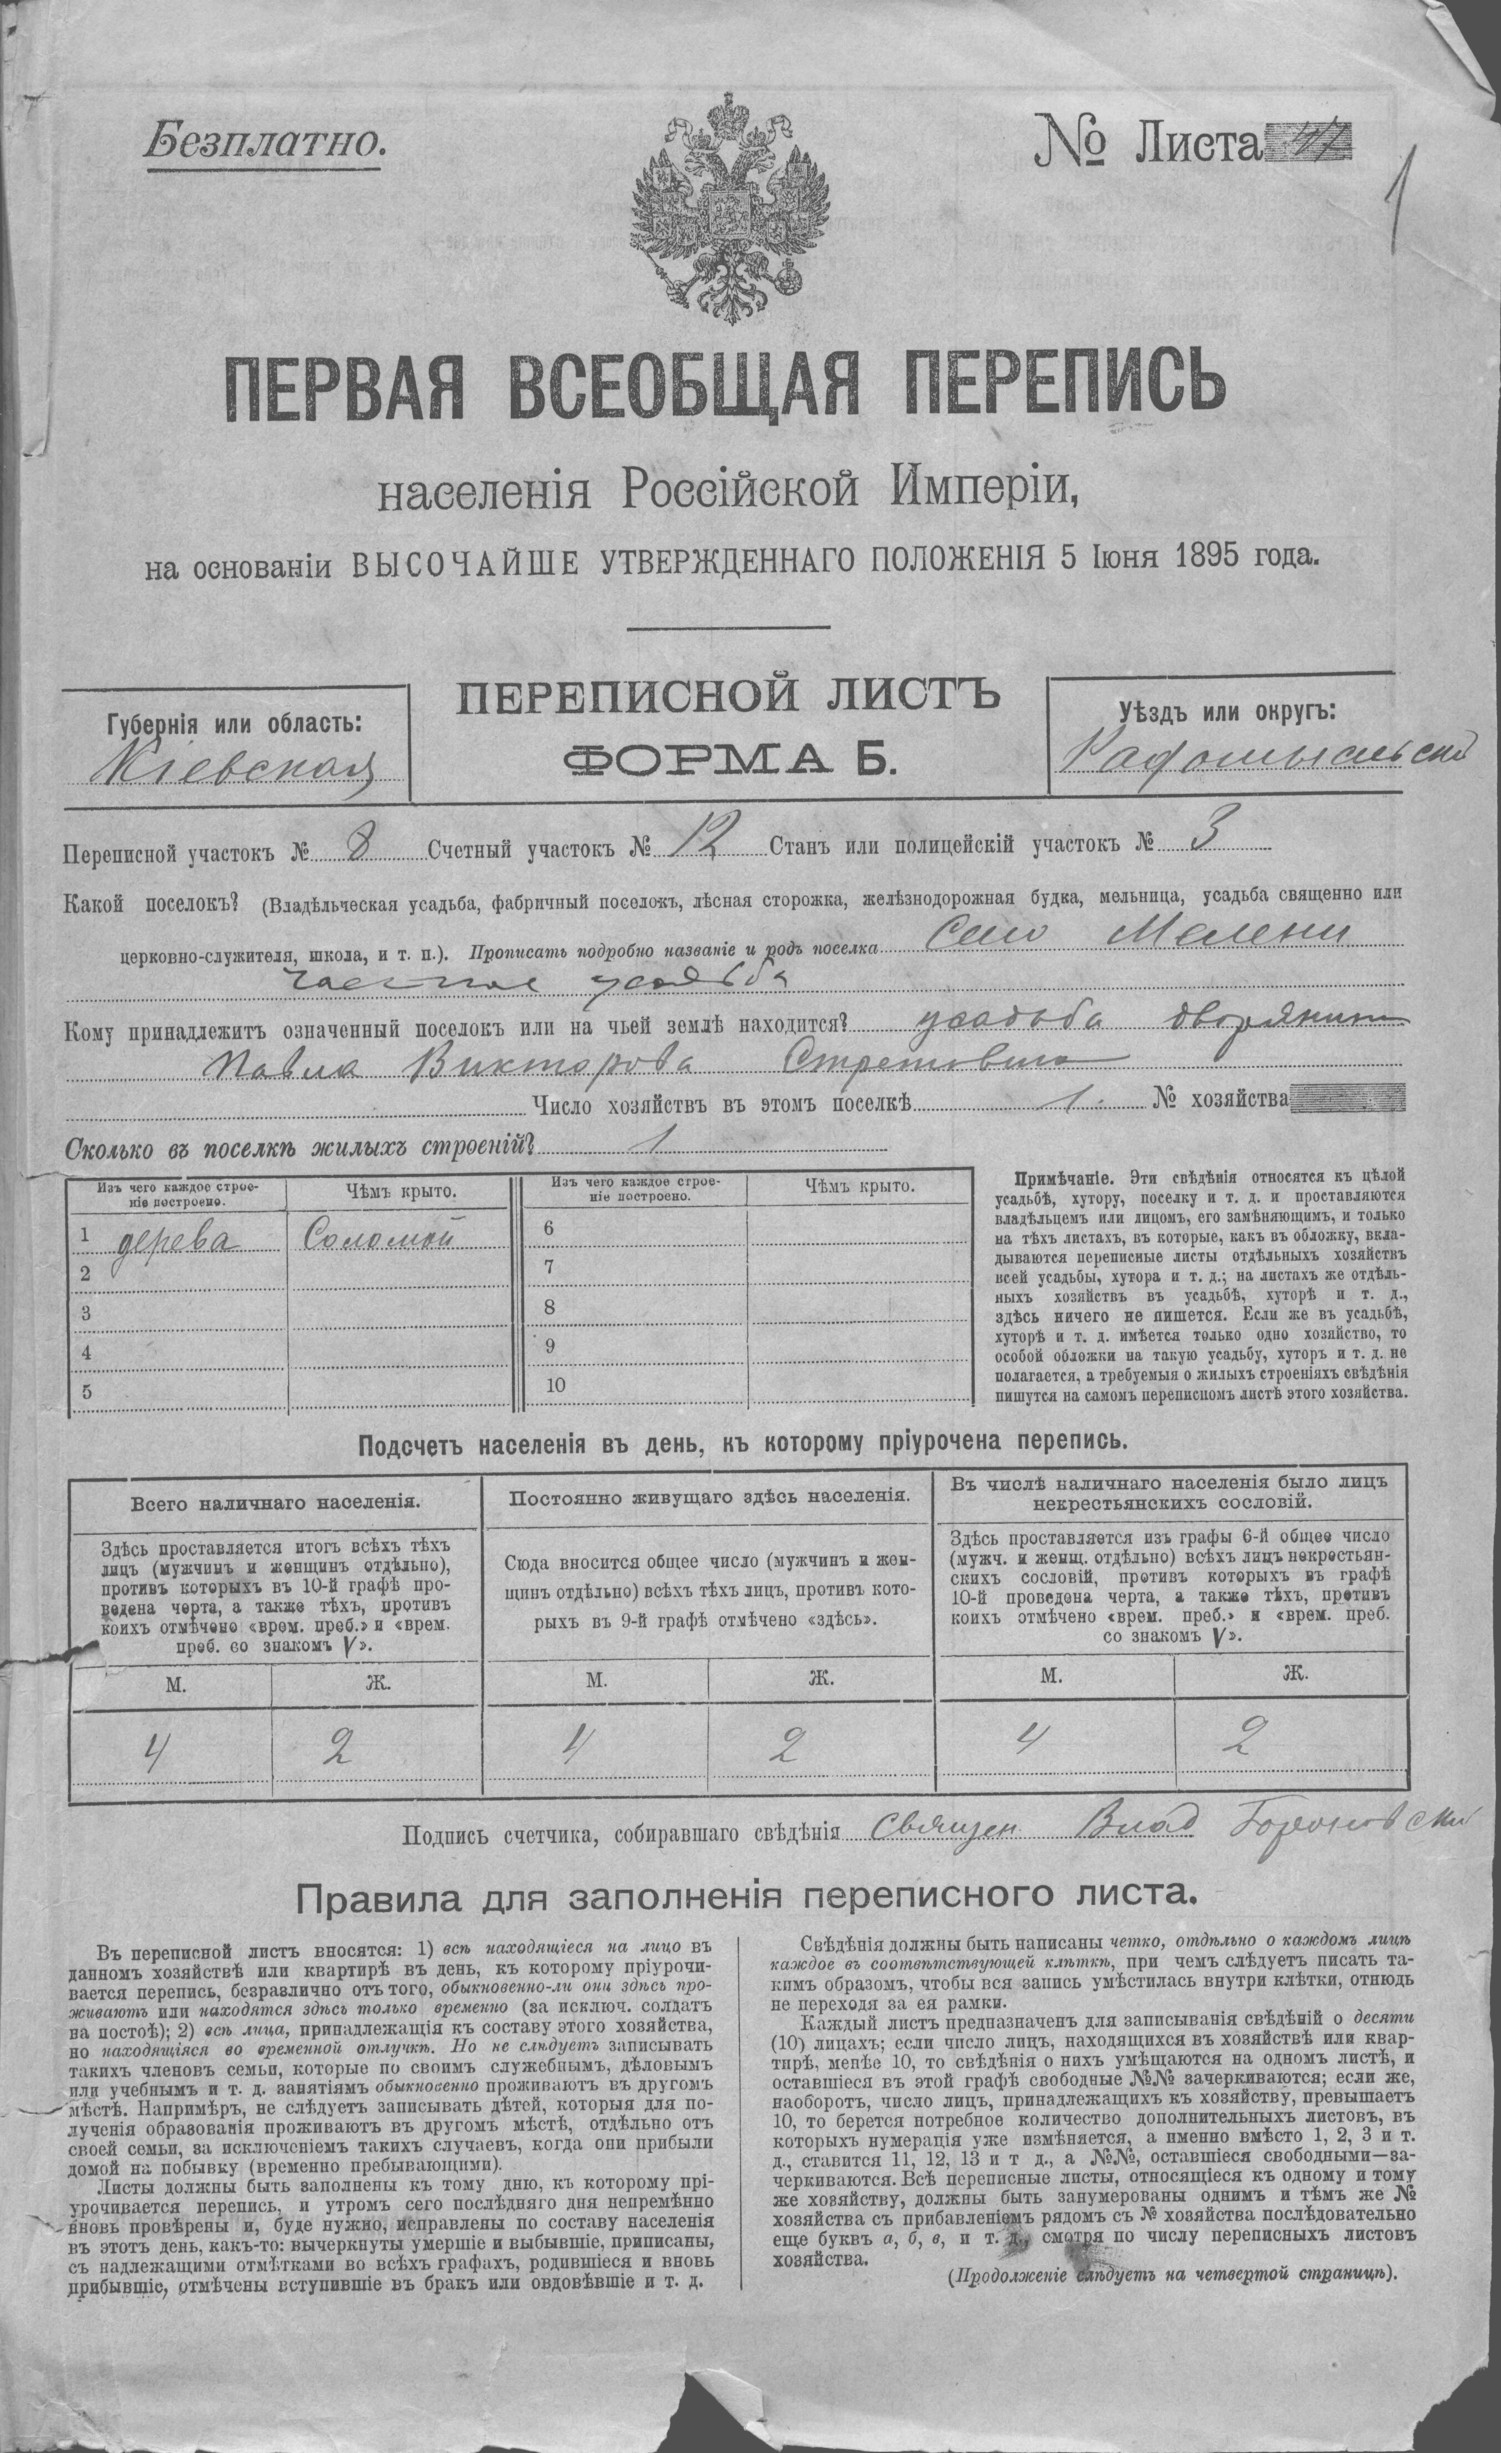 Безплатно.
№ Листа 47
1
ПЕРВАЯ ВСЕОБЩАЯ ПЕРЕПИСЬ
населенія Россійской Имперіи,
на основаніи ВЫСОЧАЙШЕ УТВЕРЖДЕННАГО ПОЛОЖЕНІЯ 5 Іюня 1895 года.
ПЕРЕПИСНОЙ ЛИСТЪ
ФОРМА Б.
Губернія или область:
Кіевская
Уѣздъ или округъ:
Радомысльскій
Переписной участокъ № 8 Счетный участокъ № 12 Станъ или полицейскій участокъ № 3
Какой поселокъ? (Владѣльческая усадьба, фабричный поселокъ, лѣсная сторожка, желѣзнодорожная будка, мельница, усадьба священно или
церковно-служителя, школа, и т. п.). Прописать подробно названіе и родъ поселка Село Мелени
частное усадьба
Кому принадлежитъ означенный поселокъ или на чьей землѣ находится? усадьба дворянина
Павла Викторова
Число хозяйствъ въ этомъ поселкѣ 1. № хозяйства
Сколько въ поселкѣ жилыхъ строеній? 1
Изъ чего каждое строе-
ніе построено.
Чѣмъ крыто.
Изъ чего каждое строе-
ніе построено.
Чѣмъ крыто.
1 дерева Соломой 6
2 7
3 8
4 9
5 10
Примѣчаніе. Эти свѣдѣнія относятся къ цѣлой
усадьбѣ, хутору, поселку и т. д. и проставляются
владѣльцемъ или лицомъ, его замѣняющимъ, и только
на тѣхъ листахъ, въ которые, какъ въ обложку, вкла-
дываются переписные листы отдѣльныхъ хозяйствъ
всей усадьбы, хутора и т. д.; на листахъ же отдѣль-
ныхъ хозяйствъ въ усадьбѣ, хуторѣ и т. д.,
здѣсь ничего не пишется. Если же въ усадьбѣ,
хуторѣ и т. д. имѣется только одно хозяйство, то
особой обложки на такую усадьбу, хуторъ и т. д. не
полагается, а требуемыя о жилыхъ строеніяхъ свѣдѣнія
пишутся на самомъ переписномъ листѣ этого хозяйства.
Подсчетъ населенія въ день, къ которому пріурочена перепись.
Всего наличнаго населенія.
Здѣсь проставляется итогъ всѣхъ тѣхъ
лицъ (мужчинъ и женщинъ отдѣльно),
противъ которыхъ въ 10-й графѣ про-
ведена черта, а также тѣхъ, противъ
коихъ отмѣчено «врем. преб.» и «врем.
преб. со знакомъ V».
Постоянно живущаго здѣсь населенія.
Сюда вносится общее число (мужчинъ и жен-
щинъ отдѣльно) всѣхъ тѣхъ лицъ, противъ кото-
рыхъ въ 9-й графѣ отмѣчено «здѣсь».
Въ числѣ наличнаго населенія было лицъ
некрестьянскихъ сословій.
Здѣсь проставляется изъ графы 6-й общее число
(мужч. и женщ. отдѣльно) всѣхъ лицъ некрестьян-
скихъ сословій, противъ которыхъ въ графѣ
10-й проведена черта, а также тѣхъ, противъ
коихъ отмѣчено «врем. преб.» и «врем. преб.
со знакомъ V».
М. Ж. М. Ж. М. Ж.
4 2 4 2 4 2
Подпись счетчика, собиравшаго свѣдѣнія Священ Влад
Правила для заполненія переписного листа.
Въ переписной листъ вносятся: 1) всѣ находящіеся на лицо въ
данномъ хозяйствѣ или квартирѣ въ день, къ которому пріурочи-
вается перепись, безразлично отъ того, обыкновенно-ли они здѣсь про-
живаютъ или находятся здѣсь только временно (за исключ. солдатъ
на постоѣ); 2) всѣ лица, принадлежащія къ составу этого хозяйства,
но находящіяся во временной отлучкѣ. Но не слѣдуетъ записывать
такихъ членовъ семьи, которые по своимъ служебнымъ, дѣловымъ
или учебнымъ и т. д. занятіямъ обыкновенно проживаютъ въ другомъ
мѣстѣ. Напримѣръ, не слѣдуетъ записывать дѣтей, которыя для по-
лученія образованія проживаютъ въ другомъ мѣстѣ, отдѣльно отъ
своей семьи, за исключеніемъ такихъ случаевъ, когда они прибыли
домой на побывку (временно пребывающими).
Листы должны быть заполнены къ тому дню, къ которому прі-
урочивается перепись, и утромъ сего послѣдняго дня непремѣнно
вновь провѣрены и, буде нужно, исправлены по составу населенія
въ этотъ день, какъ-то: вычеркнуты умершіе и выбывшіе, приписаны,
съ надлежащими отмѣтками во всѣхъ графахъ, родившіеся и вновь
прибывшіе, отмѣчены вступившіе въ бракъ или овдовѣвшіе и т. д.
Свѣдѣнія должны быть написаны четко, отдѣльно о каждомъ лицѣ
каждое въ соотвѣтствующей клѣткѣ, при чемъ слѣдуетъ писать та-
кимъ образомъ, чтобы вся запись умѣстилась внутри клѣтки, отнюдь
не переходя за ея рамки.
Каждый листъ предназначенъ для записыванія свѣдѣній о десяти
(10) лицахъ; если число лицъ, находящихся въ хозяйствѣ или квар-
тирѣ, менѣе 10, то свѣдѣнія о нихъ умѣщаются на одномъ листѣ, и
оставшіеся въ этой графѣ свободные №№ зачеркиваются; если же,
наоборотъ, число лицъ, принадлежащихъ къ хозяйству, превышаетъ
10, то берется потребное количество дополнительныхъ листовъ, въ
которыхъ нумерація уже измѣняется, а именно вмѣсто 1, 2, 3 и т.
д., ставится 11, 12, 13 и т д., а №№, оставшіеся свободными—за-
черкиваются. Всѣ переписные листы, относящіеся къ одному и тому
же хозяйству, должны быть занумерованы однимъ и тѣмъ же №
хозяйства съ прибавленіемъ рядомъ съ № хозяйства послѣдовательно
еще буквъ а, б, в, и т. д., смотря по числу переписныхъ листовъ
хозяйства.
(Продолженіе слѣдуетъ на четвертой страницѣ).